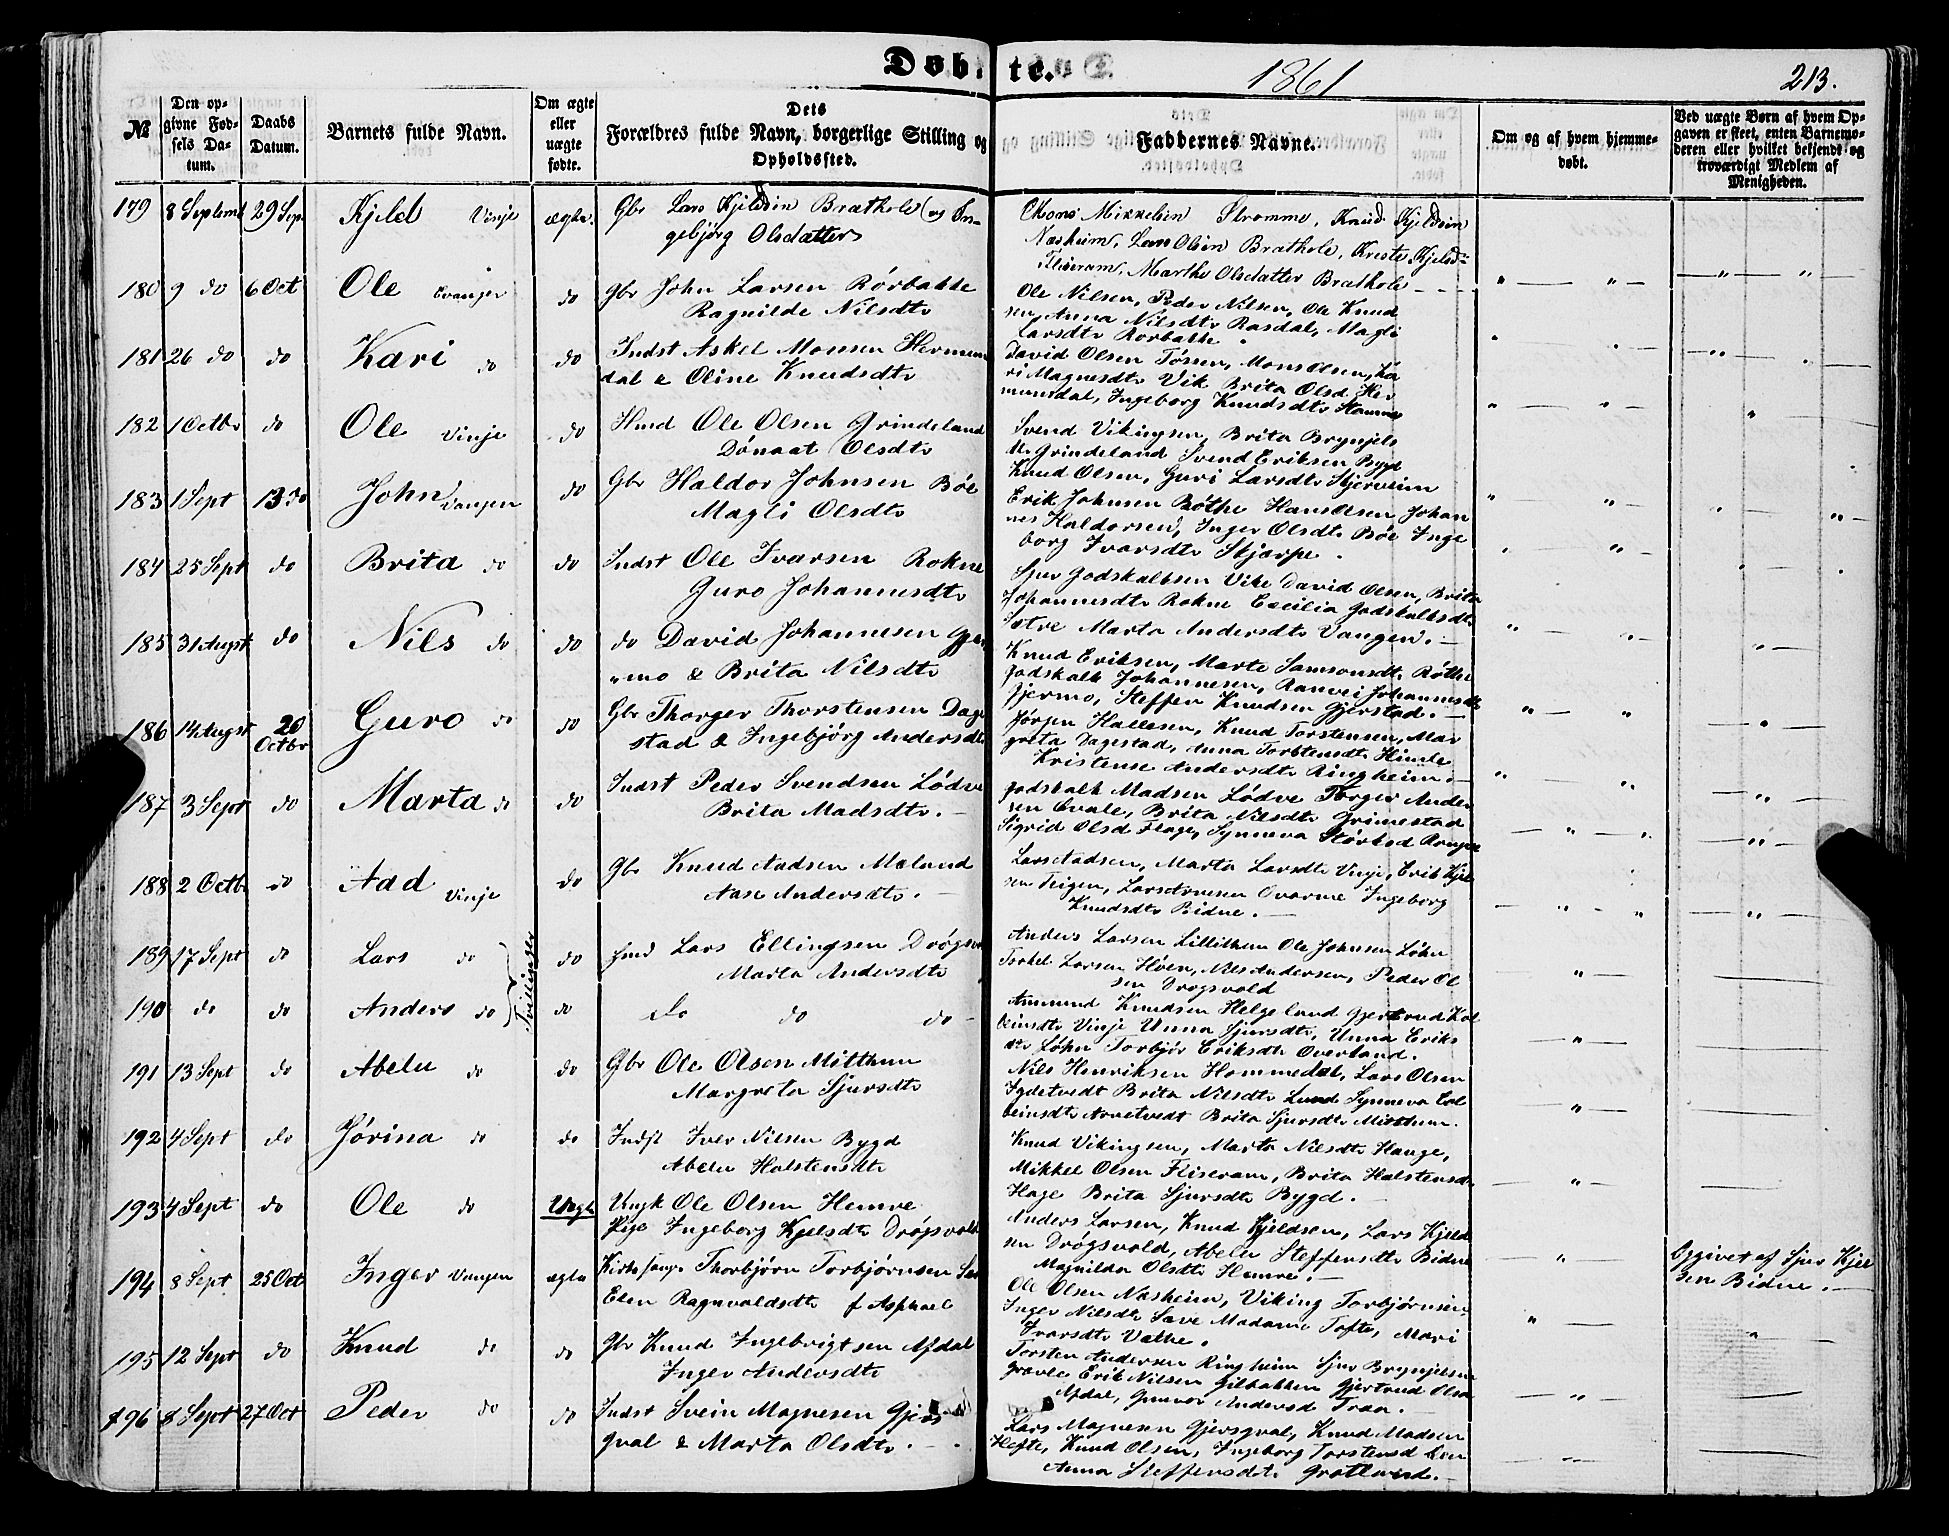 Døbte.
1861
213.
№
Den opgivne Fødsels Datum.
Daabs Datum.
Barnets fulde Navn.
Om ægte eller uægte fødte.
Dets Forældres fulde Navn, borgerlige Stilling og Opholdssted.
Faddernes Navne.
Om og af hvem hjemmedøbt.
Ved uægte Børn af hvem Opgaven er skeet, enten Barnemoderen eller hvilket bekjendt og troværdigt Medlem af Menigheden.
179 8 Septemb 29 Sep Kjeld Vinje ægte. Gbr Lars Kjeldsen Brathole og In-
gebjørg Olsdatter
Mons Mikkelsen Strømme, Knud Kjeldsen
Næsheim, Lars Olsen Brathole, Kreste Kjelsd
Fliseram, Marthe Olsdatter Brathole
180 9 do 6 Oct Ole Evanger do Gbr John Larsen Rørbakke
Ragnilde Nilsdtr
Ole Nilsen, Peder Nilsen, Ole Knud
sen, Anna Nilsdtr Rasdal, Magli
Larsdtr Rørbakke
181 26 do do Kari do do Indst Askel Monsen Hermun
dal & Oline Knudsdtr
David Olsen Tøssen, Mons Olsen, Ka
ri Magnesdtr Vik Brita Olsd Her
munsdal, Ingeborg Knudsdtr Hamme
182 1 Octbr do Ole Vinje do Hmd Ole Olsen Grindeland
Dønaat Olsdtr
Svend Vikingsen, Brita Brynjels
dtr Grindeland Svend Eriksen Bygd
Knud Olsen, Guri Larsdtr Skjerveim
183 1 Sept 13 do John Vangen do Gbr Haldor Johnsen Bøe
Magli Olsdtr
Erik Johnsen Røthe Hans Olsen Johan
nes Haldorsen, Inger Olsdtr Bøe Inge
borg Ivarsdtr Skjærpe.
184 25 Sept do Brita do do Indst Ole Ivarsen Rokne
Guro Johannesdtr
Sjur Godskalksen Vike David Olsen, Brita
Johannesdtr Rokne Cecilia Godskalksdtr
Sætre Marta Andersdtr Vangen.
185 31 Augst do Nils do do do David Johannesen Gjer
mo & Brita Nilsdtr
Knud Eriksen, Marte Samsonsdtr Røthe
Godskalk Johannesen, Ranvei Johannesdtr
Gjermo, Steffen Knudsen Gjerstad.
186 14 Augst 20 Octbr Guro do do Gbr Thorger Thorstensen Dage
stad & Ingebjørg Andersdtr
Jørgen Hallesen, Knud Torstensen, Mar
greta Dagestad, Anna Torstensdtr Himle
Kristense Andersdtr Ringheim.
187 3 Sept do Marta do do Indst Peder Svendsen Lødve
Brita Madsdtr.
Godskalk Madsen Lødve Torger Ander
sen Qvale, Brita Nilsdtr Grimestad
Sigrid Olsd Flage, Synneva
188 2 Octbr do Aad Vinje do Gbr Knud Aadsen Mæland
Aase Andersdtr.
Lars Aadsen, Marta Larsdtr Vinje, Erik Kjel
sen Teigen, Lars Arnesen Qvarme Ingeborg
Knudsdtr Bidne.
189 17 Sept do Lars do Tvillinger do Hmd Lars Ellingsen Drøgsvo
Marta Andersdtr
Anders Larsen Lillethun Ole Johnsen Løhn
Torkel Larsen Høen, Nils Andersen, Peder Ol
sen Drøgsvold
190 do do Anders do do do do do
Ammund Knudsen Helgeland Gjertrud Kol
beinsdtr Vinje Unna Sjursdtr, Unna Eriks
dtr Løhn Torbjør Eriksdtr Øverland.
191 13 Sept do Abelu do do Gbr Ole Olsen Mitthun
Margreta Sjursdtr
Nils Henriksen Hommedal, Lars Olsen
Igdetvedt Brita Nilsdtr Lund Synneva Kol
beinsdtr Arnetvedt Brita Sjursdtr Mitthun.
192 4 Sept do Jørina do do Indst Iver Nilsen Bygd
Abelu Halstensdtr
Knud Vikingsen, Marta Nilsdtr Hauge,
Mikkel Olsen Fliseram, Brita Halstensd
Hage Brita Sjursdtr Bygd.
193 4 Sept do Ole do Uægte Ungk Ole Olsen Hemre
Pige Ingeborg Kjelsdtr Drøgsvold
Anders Larsen, Knud Kjeldsen, Lars Kjeld
sen Drøgsvold, Abelu Steffensdtr Bidne
Magnilda Olsdtr Hemre.
Opgivet af Sjur Kjel
sen Bidne.
194 8 Sept 25 Oct Inger Vangen ægte Kirkesang. Thorbjørn Torbjørnsen Sæ
Elen Ragnvaldsdtr f Asphoel
Ole Olsen Næsheim, Viking Torbjørnsen
Inger Nilsdtr Sæve Madame Tofte, Mari
Ivarsdtr Væthe.
195 12 Sept do Knud do do Gbr Knud Ingebrigtsen Afdal
Inger Andersdtr
Torsten Andersen Ringheim Sjur Brynjelsen
Gravle Erik Nilsen Gilbakken Gjertrud Olsd
Afdal, Gunvor Andersd Traa.
196 8 Sept 27 Oct Peder do do Indst Svein Magnesen Gjers
qval & Marta Olsdtr.
Lars Magnesen Gjersqval, Knud Madsen
Hefte, Knud Olsen, Ingeborg Torstensd
Anna Steffensdtr Grotland.